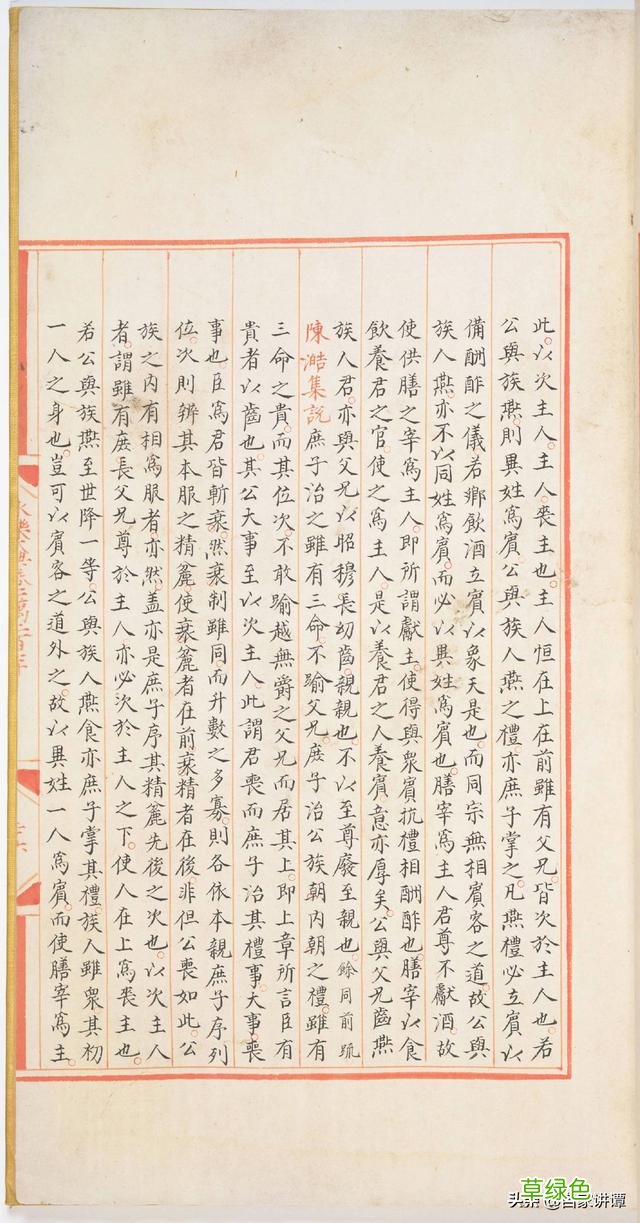 此以次主人主人喪主也主人恒在上在前雖有父兄皆次於主人也若
公與族燕則異姓為賓公與族人燕之禮亦庶子掌之凡燕禮必立賓以
備酬酢之儀若鄉飲酒立賓以象天是也而同宗無相賓客之道故公與
族人燕亦不以同姓為賓而必以異姓為賓也膳宰為主人君尊不獻酒故
使供膳之宰為主人即所謂獻主使得與衆賓抗禮相酬酢也膳宰以食
飲養君之官使之為主人是以養君之人養賓意亦厚矣公與父兄齒燕
族人君亦與父兄以昭穆長幼齒親親也不以至尊廢至親也餘同前疏
陳澔集説庶子治之雖有三命不踰父兄庶子治公族朝内朝之禮雖有
三命之貴而其位次不敢踰越無爵之父兄而居其上即上章所言臣有
貴者以齒也其公大事至以次主人此謂君喪而庶子治其禮事大事喪
事也臣為君皆斬衰然衰制雖同而升數之多寡則各依本親庶子序列
位次則辨其本服之精麄使衰麄者在前衰精者在後非但公喪如此公
族之内有相為服者亦然盖亦是庶子序其精麄先後之次也以次主人
者謂雖有庶長父兄尊於主人亦必次於主人之下使人在上為喪主也
若公與族燕至世降一等公與族人燕食亦庶子掌其禮族人雖衆其初
一人之身也豈可以賓客之道外之故以異姓一人為賓而使膳宰為主
草绿色
头条 @百家讲谭